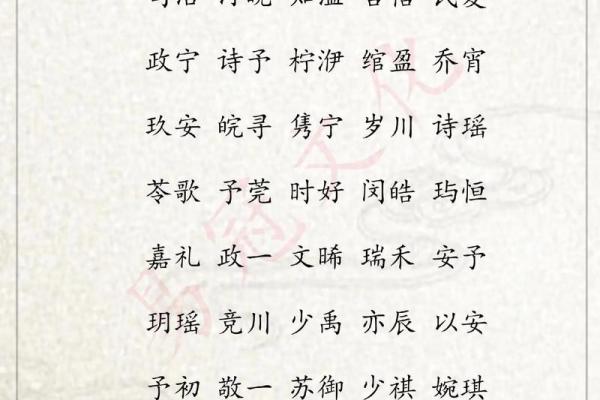 政宁 诗予 柠洢 绾盈 乔宵
玖安 皖寻 隽宁 岁川 诗瑶
苓歌 予莞 时好 闵皓 玙恒
嘉礼 政一 文晞 瑞禾 安予
玥瑶 竞川 少禹 亦辰 以安
予初 敬一 苏御 少祺 婉琪